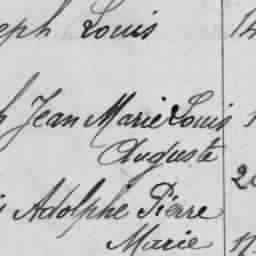 eph Louis
h Jean Marie Louis
Auguste
s Adolphe Pierre
Marie